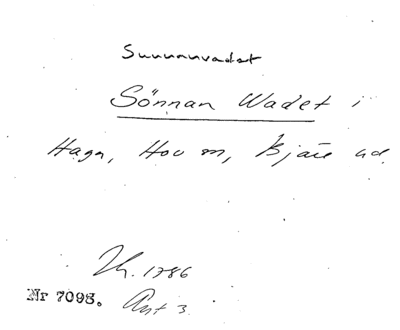 Sunnanvadet
Sönnan Wadet i
Haga, Hov sn, Bjäre hd.
Lh. 1786
Nr 7095. Akt 3